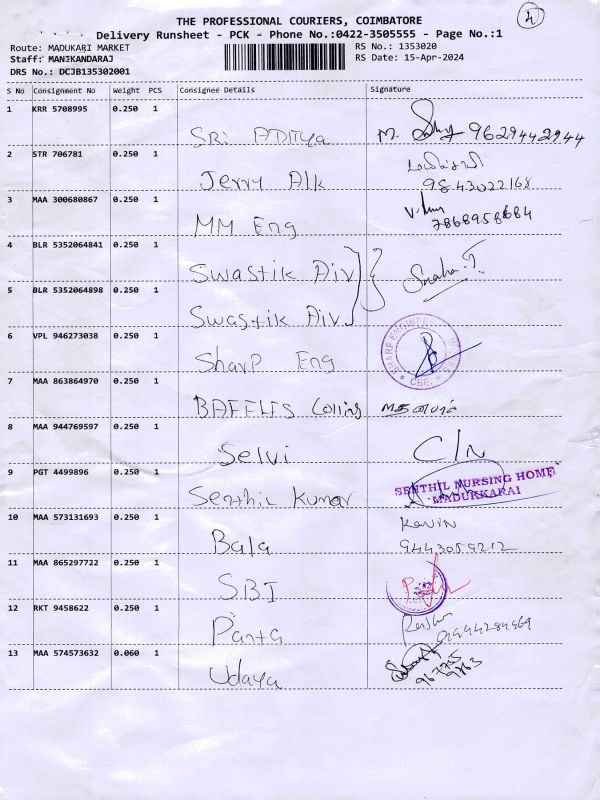 4
THE PROFESSIONAL COURIERS, COIMBATORE
Delivery Runsheet - PCK - Phone No.:0422-3505555 - Page No.:1
Route: MADUKARI MARKET RS No.: 1353020
Staff: MANIKANDARAJ RS Date: 15-Apr-2024
DRS No.: DCJB135302001
S No Consignment No Weight PCS Consignee Details Signature
1 KRR 5708995 0.250 1
SRI ADITYA M. 9629442944
2 STR 706781 0.250 1
Jerry Alk 9843022168
3 MAA 300680867 0.250 1
MM Eng 7868958684
4 BLR 5352064841 0.250 1
Swastik Aiv Sneha.T
5 BLR 5352064898 0.250 1
Swastik Aiv
6 VPL 946273038 0.250 1
Sharp Eng SHARP ENGINEERING CBE.
7 MAA 863864970 0.250 1
BAFFLES
8 MAA 944769597 0.250 1
Selvi C/N
9 PGT 4499896 0.250 1
Senthil Kumar SENTHIL NURSING HOME
MADUKKARAI
10 MAA 573131693 0.250 1 Kavin
Bala 9443059212
11 MAA 865297722 0.250 1
SBI
12 RKT 9458622 0.250 1
13 MAA 574573632 0.060 1
Udaya